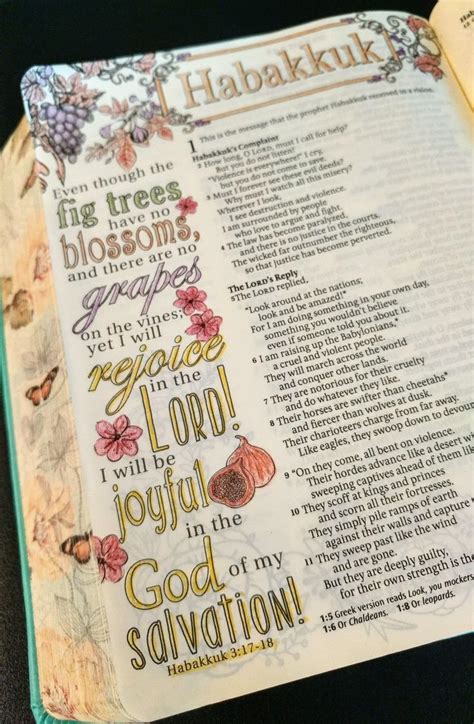 Habakkuk
Even though the
fig trees
have no
blossoms,
and there are no
grapes
on the vines;
yet I will
rejoice
in the
LORD!
I will be
joyful
in the
God of my
salvation!
Habakkuk 3:17-18
1 This is the message that the prophet Habakkuk received in a vision.
Habakkuk's Complaint
2 How long, O LORD, must I call for help?
But you do not listen!
"Violence is everywhere!" I cry,
but you do not come to save.
3 Must I forever see these evil deeds?
Why must I watch all this misery?
Wherever I look,
I see destruction and violence.
I am surrounded by people
who love to argue and fight.
4 The law has become paralyzed,
and there is no justice in the courts.
The wicked far outnumber the righteous,
so that justice has become perverted.
The Lord's Reply
5 The LORD replied,
"Look around at the nations;
look and be amazed!*
For I am doing something in your own day,
something you wouldn't believe
even if someone told you about it.
6 I am raising up the Babylonians,*
a cruel and violent people.
They will march across the world
and conquer other lands.
7 They are notorious for their cruelty
and do whatever they like.
8 Their horses are swifter than cheetahs*
and fiercer than wolves at dusk.
Their charioteers charge from far away.
Like eagles, they swoop down to devour
9 "On they come, all bent on violence.
Their hordes advance like a desert
sweeping captives ahead of them like
10 They scoff at kings and princes
and scorn all their fortresses.
They simply pile ramps of earth
against their walls and capture
11 They sweep past like the wind
and are gone.
But they are deeply guilty,
for their own strength is the
1:5 Greek version reads Look, you mockers
1:6 Or Chaldeans. 1:8 Or leopards.